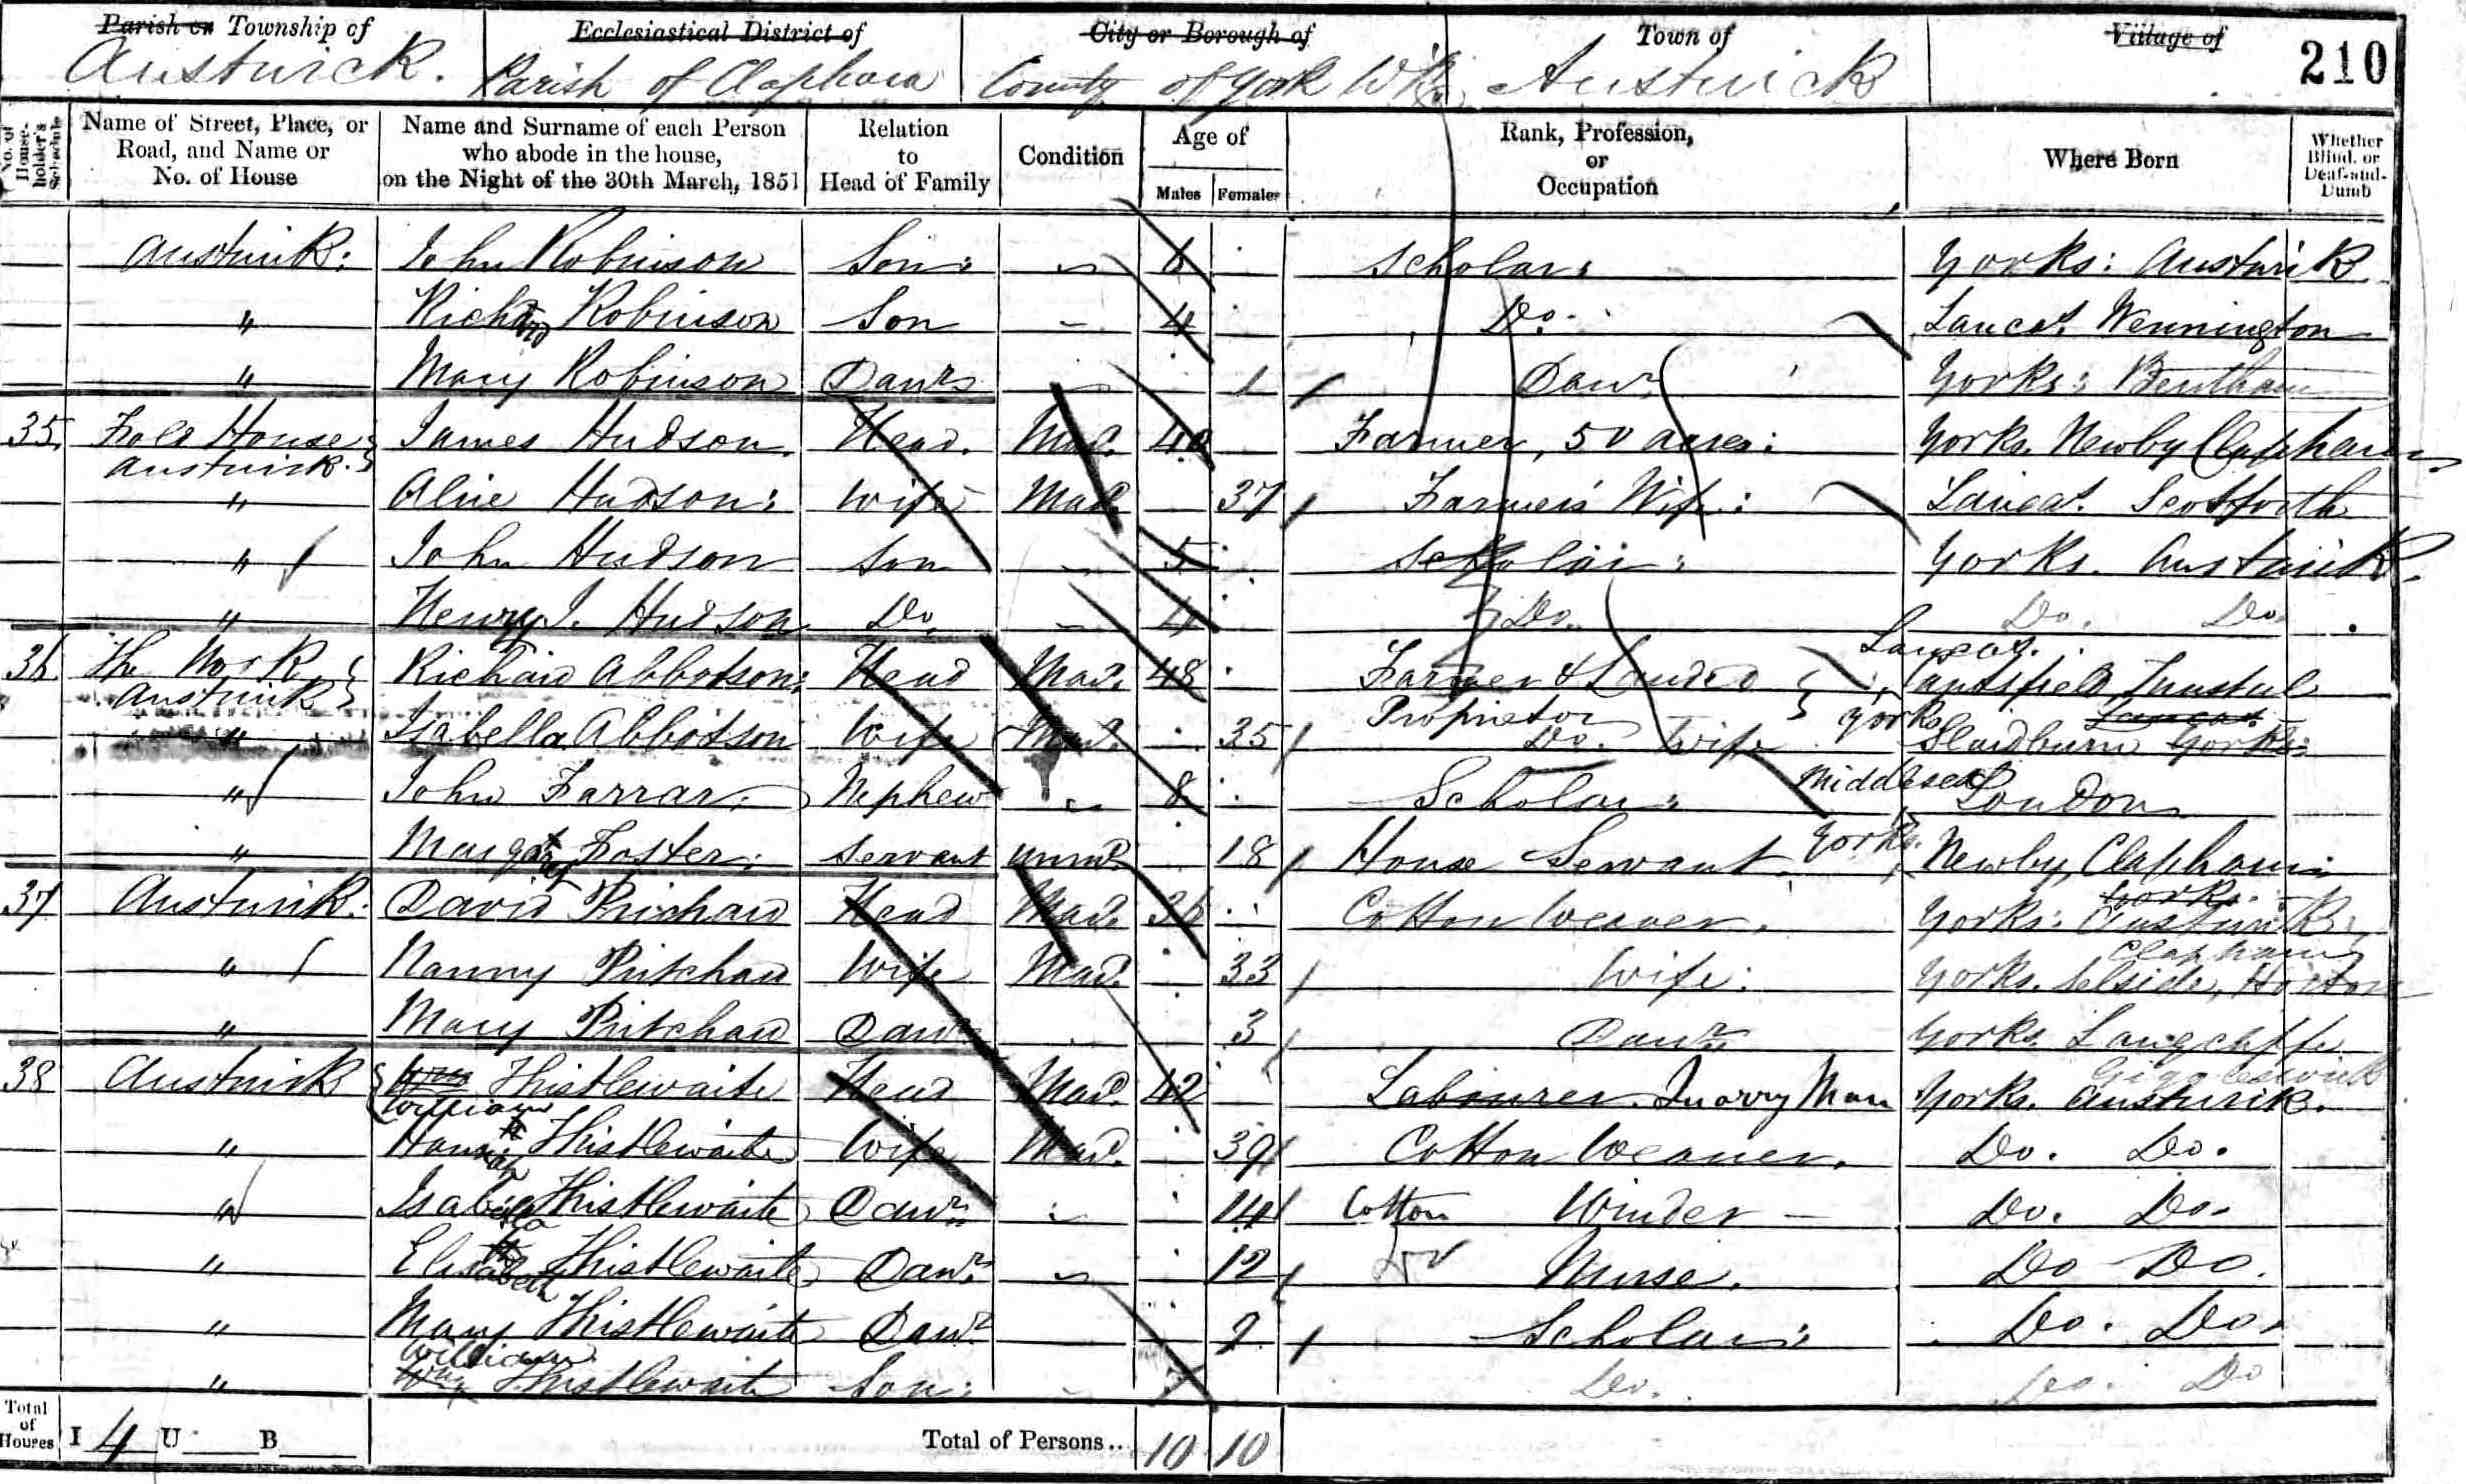 Parish or Township of Ecclesiastical District of City or Borough of Town of Village of 210
Austwick. Parish of Clapham County of York Austwick
No. of House-holder's Schedule
Name of Street, Place, or Road, and Name or No. of House
Name and Surname of each Person who abode in the house, on the Night of the 30th March, 1851
Relation to Head of Family
Condition
Age of
Males Females
Rank, Profession, or Occupation
Where Born
Whether Blind, or Deaf-and-Dumb
Austwick: John Robinson Son Scholar Yorks: Austwick
" Richard Robinson Son - 4 Do. Lancas. Wennington
" Mary Robinson Daur. 1 Daur. Yorks: Bentham
35 House James Hudson Head. Mar. 40 Farmer, 50 acres: Yorks. Newby Clapham
Austwick.
" Alice Hudson: Wife Mar. 37 Farmer's Wife: Lancas. Scotforth
" John Hudson Son 5 Scholar: Yorks. Austwick.
" Henry J. Hudson Do. 4 Do. Do. Do.
Lancas.
36 The Richard Abbotson: Head Mar. 48 Farmer & Landed Cantsfield Tunstal
Austwick Proprietor
" Isabella Abbotson Wife Mar. 35 Do. Wife Yorks Slaidburn Lancas Yorks:
" John Farrar. Nephew 8 Scholar: Middlesex London
" Margaret Foster. Servant Unmd. 18 House Servant. Yorks. Newby, Clapham
37 Austwick: David Prichard Head Mar. 36 Cotton Weaver. Yorks: Austwick
Yorks.
Clapham
" Nanny Pritchard Wife Mar. 33 Wife: Yorks. Selside, Horton
" Mary Pritchard Daur. 3 Daur. Yorks. Langcliffe
Giggleswick
38 Austwick Wm Thistlewaite Head Mar. 42 Labourer. Quarry Man Yorks. Austwick.
William
" Hannah Thistlewaite Wife Mar. 39 Cotton Weaver. Do. Do.
" Isabella Thistlewaite Daur. 14 Cotton Winder - Do. Do.
" Elisabeth Thistlewaite Daur. 12 Nurse. Do Do.
" Mary Thistlewaite Daur. 9 Scholar: Do. Do.
William
" Wm Thistlewaite Son: Do. Do. Do
Total of Houses I 4 U B Total of Persons.. 10 10